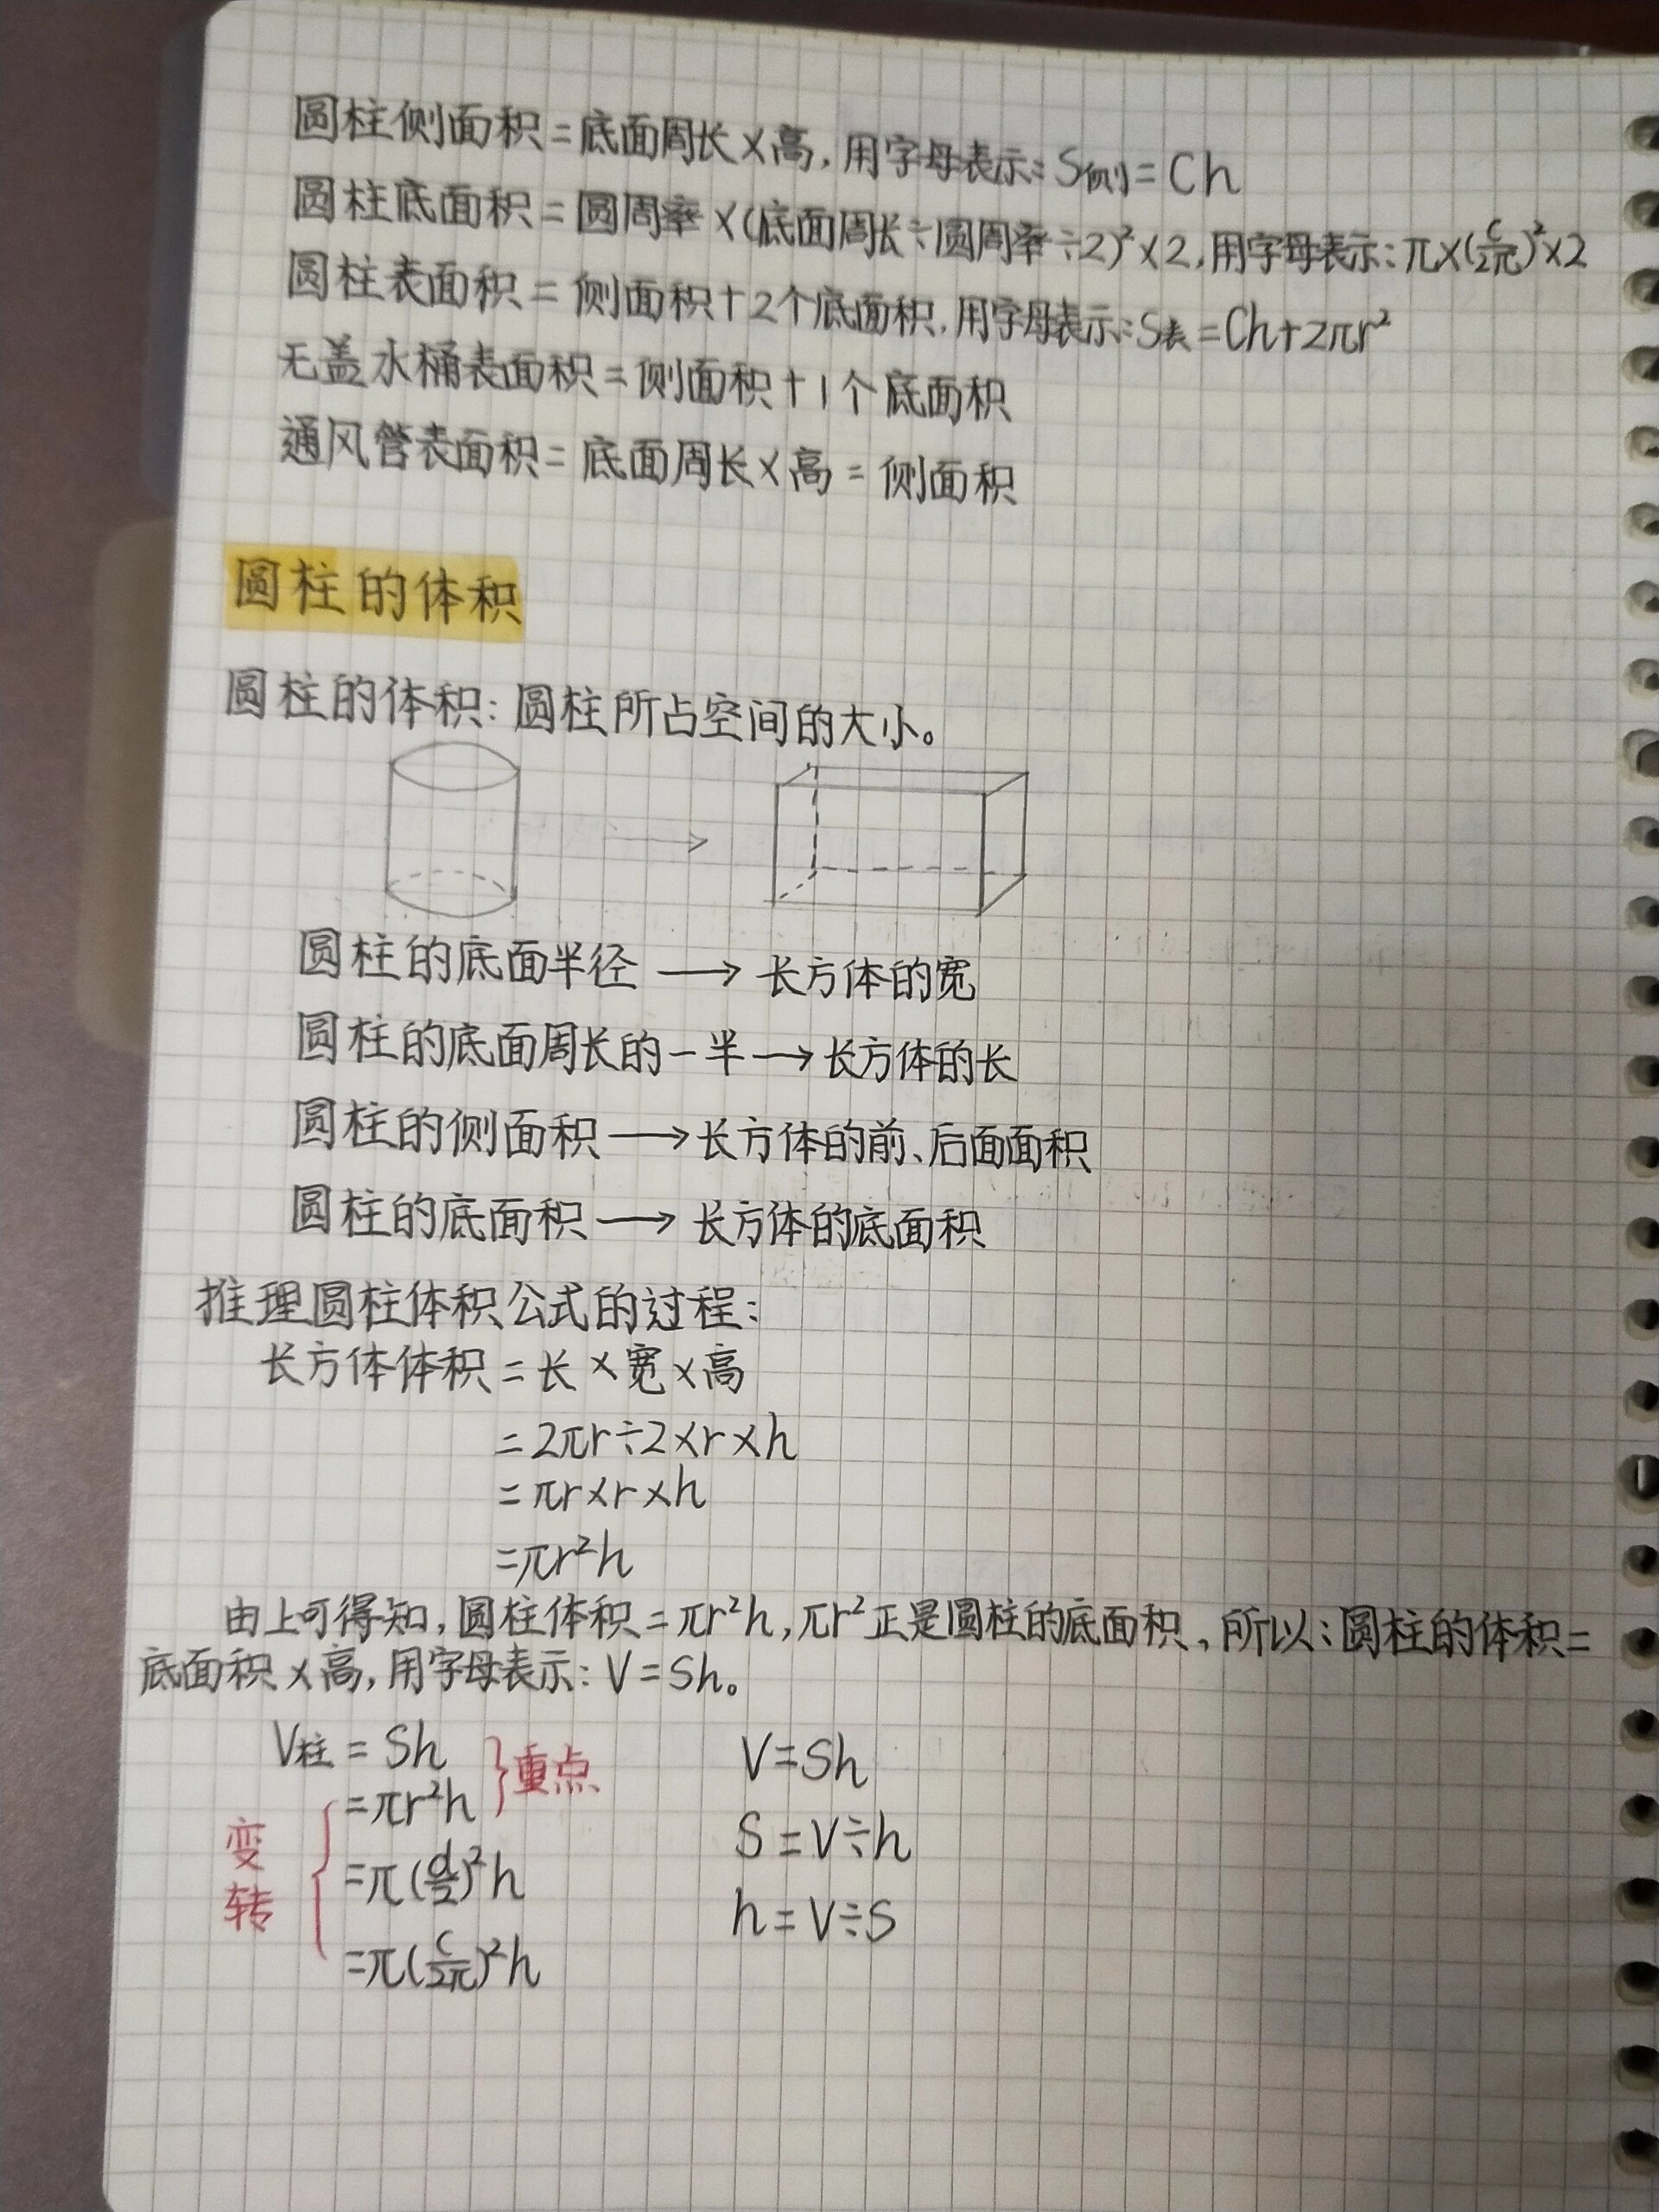 圆柱侧面积=底面周长×高,用字母表示:S侧=Ch
圆柱底面积=圆周率×(底面周长÷圆周率÷2)²×2,用字母表示:π×(C/2π)²×2
圆柱表面积=侧面积+2个底面积,用字母表示:S表=Ch+2πr²
无盖水桶表面积=侧面积+1个底面积
通风管表面积=底面周长×高=侧面积
圆柱的体积
圆柱的体积:圆柱所占空间的大小。
圆柱的底面半径→长方体的宽
圆柱的底面周长的一半→长方体的长
圆柱的侧面积→长方体的前、后面面积
圆柱的底面积→长方体的底面积
推理圆柱体积公式的过程:
长方体体积=长×宽×高
=2πr÷2×r×h
=πr×r×h
=πr²h
由上可得知,圆柱体积=πr²h,πr²正是圆柱的底面积,所以:圆柱的体积=
底面积×高,用字母表示:V=Sh。
V柱=Sh
=πr²h
重点
=π(d/2)²h
=π(C/2π)²h
变
转
V=Sh
S=V÷h
h=V÷S